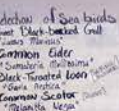 election of Sea birds
eat Black-backed Gull
"Larus Marinus"
Common Eider
"Somateria Mollissima"
Black-Throated Loon
"Gavia Arctica"
Common Scoter
"Melanitta Nigra"